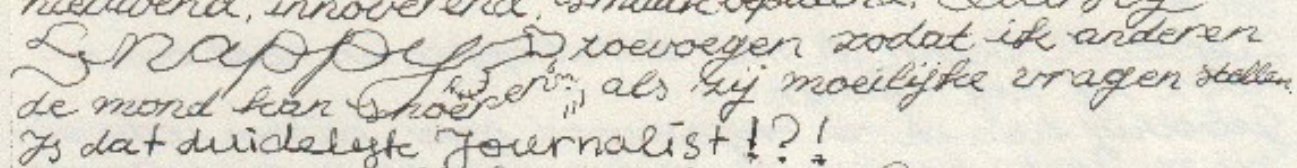 nieuwend, innoverend, smaakbepalend,
Snappy toevoegen zodat ik anderen
de mond kan snoeren, als zij moeilijke vragen stellen.
Is dat duidelijk Journalist!?!